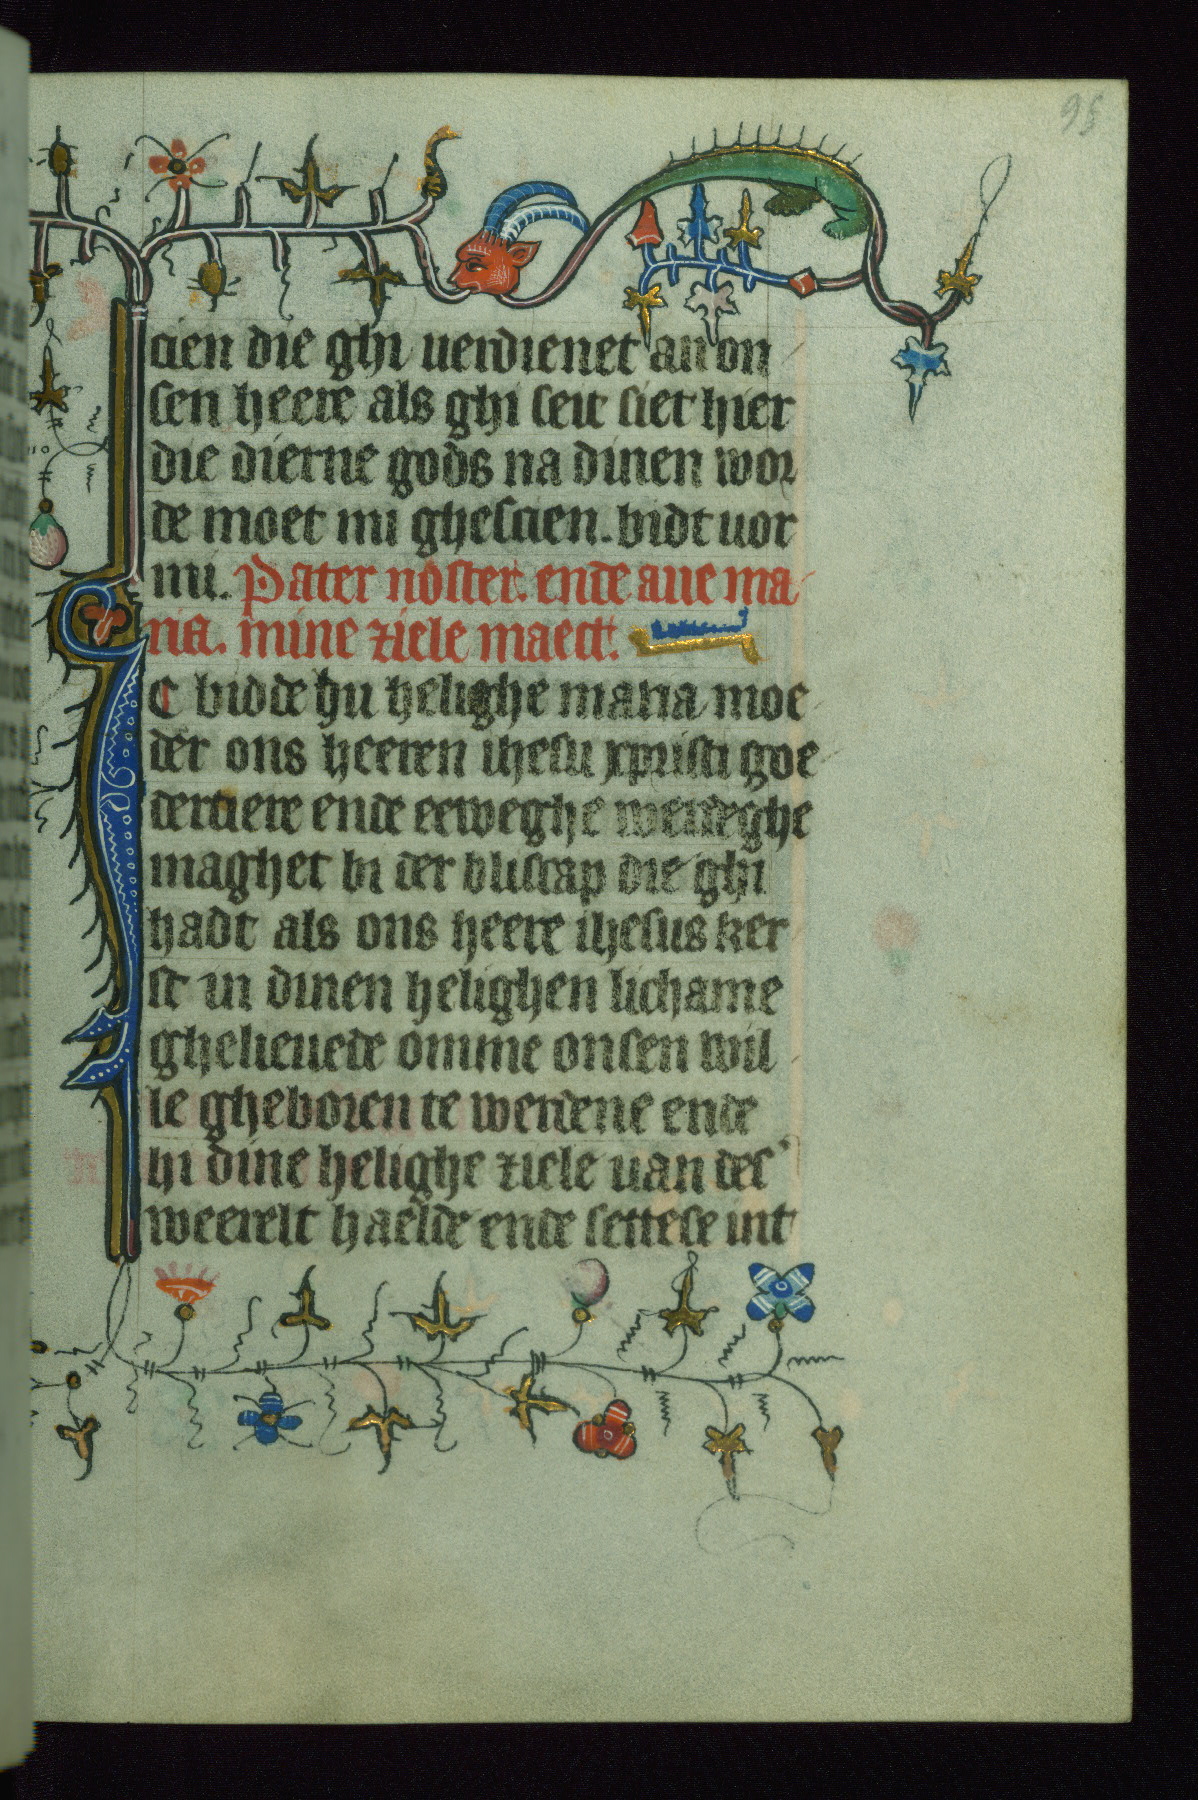 95
cien die ghi uerdienet an on
sen heere als ghi seit siet hier
die dierne gods na dinen wor
de moet mi ghescien. bidt uor
mi. Pater noster. ende aue ma
ria. mine ziele maect.
IC bidde hu helighe maria moe
der ons heeren ihesu xpristi goe
dertiere ende eeweghe werdeghe
maghet bi der bliscap die ghi
hadt als ons heere ihesus ker
st in dinen helighen lichame
ghelieuede omme onsen wil
le gheboren te werdene ende
hi dine helighe ziele uan des
weerelt haelde ende settese int